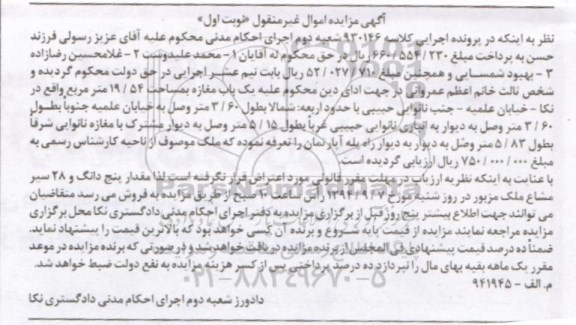 آگهی مزایده اموال غیرمنقول «نوبت اول»
نظر به اینکه در پرونده اجرایی کلاسه ۹۳۰۱۴۶ شعبه دوم اجرای احکام مدنی محکوم علیه آقای عزیز رسولی فرزند
حسن به پرداخت مبلغ ۲۳۰ / ۵۵۴ / ۱۶۶۰ ریال در حق محکوم له آقایان ۱- محمد علیدوست ۲- غلامحسین رضازاده
۳- بهبود شمسایی و همچنین مبلغ ۷۱۰ / ۰۲۷ / ۵۲ ریال بابت نیم عشر اجرایی در حق دولت محکوم گردیده و
شخص ثالث خانم اعظم عمروانی در جهت ادای دین محکوم علیه یک باب مغازه بمساحت ۵۴ / ۱۹ متر مربع واقع در
نکا - خیابان علمیه - جنب نانوایی حبیبی با حدود اربعه: شمالا بطول ۶۰ / ۳ متر وصل به خیابان علمیه جنوبا بطول
۶۰ / ۳ متر وصل به دیوار به انباری نانوایی حبیبی غربا بطول ۱۵ / ۵ متر وصل به دیوار مشترک با مغازه نانوایی شرقا
بطول ۸۳ / ۵ متر وصل به دیوار به دیوار راه پله آپارتمان را تعرفه نموده که ملک موصوف از ناحیه کارشناس رسمی به
مبلغ ۰۰۰ / ۰۰۰ / ۷۵۰ ریال ارزیابی گردیده است.
با عنایت به اینکه نظریه ارزیاب در مهلت مقرر قانونی مورد اعتراض قرار نگرفته است لذا مقدار پنج دانگ و ۲۸ سیر
مشاع ملک مزبور در روز شنبه مورخ ۷ / ۹ / ۱۳۹۴ راس ساعت ۱۰ صبح از طریق مزایده به فروش می رسد متقاضیان
می توانند جهت اطلاع بیشتر پنج روز قبل از برگزاری مزایده به دفتر اجرای احکام مدنی دادگستری نکا محل برگزاری
مزایده مراجعه نمایند مزایده از قیمت پایه شروع و برنده آن کسی خواهد بود که بالاترین قیمت را پیشنهاد نماید.
ضمناً ده درصد قیمت پیشنهادی فی المجلس از برنده مزایده دریافت خواهد شد و در صورتی که برنده مزایده در موعد
مقرر یک ماهه بقیه بهای مال را نپردازد ده درصد پرداختی پس از کسر هزینه مزایده به نفع دولت ضبط خواهد شد.
م. الف - ۹۴۱۹۴۵
دادورز شعبه دوم اجرای احکام مدنی دادگستری نکا
ParsNamadData
۰۲۱-۸۸۳۴۹۶۷۰-۵